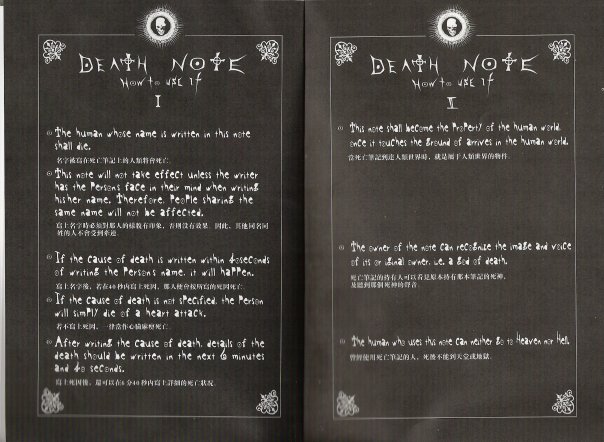 DEATH NOTE
How to use it
I
The human whose name is written in this note
shall die.
名字被寫在死亡筆記上的人類將會死亡.
This note will not take effect unless the writer
has the persons face in their mind when writing
his/her name. Therefore, people sharing the
same name will not be affected.
寫上名字時必須對那人的樣貌有印象, 否則沒有效果. 因此, 其他同名同
姓的人不會受到牽連.
If the cause of death is written within 40seconds
of writing the persons name, it will happen.
寫上名字後, 若在40秒內寫上死因, 那人便會按所寫的死因死亡.
If the cause of death is not specified, the person
will simply die of a heart attack.
若不寫上死因, 一律當作心臟麻痺死亡.
After writing the cause of death, details of the
death should be written in the next 6 minutes
and 40 seconds.
寫上死因後, 還可以在6分40秒內寫上詳細的死亡狀況.
DEATH NOTE
How to use it
II
This note shall become the property of the human world,
once it touches the ground of arrives in the human world.
當死亡筆記到達人類世界時, 就是屬于人類世界的物件.
The owner of the note can recognize the image and voice
of its or iginal owner, i.e. a god of death.
死亡筆記的持有人可以看見原本持有那本筆記的死神,
及聽到那個死神的聲音.
The human who uses this note can neither go to Heaven nor Hell.
曾經使用死亡筆記的人, 死後不能到天堂或地獄.